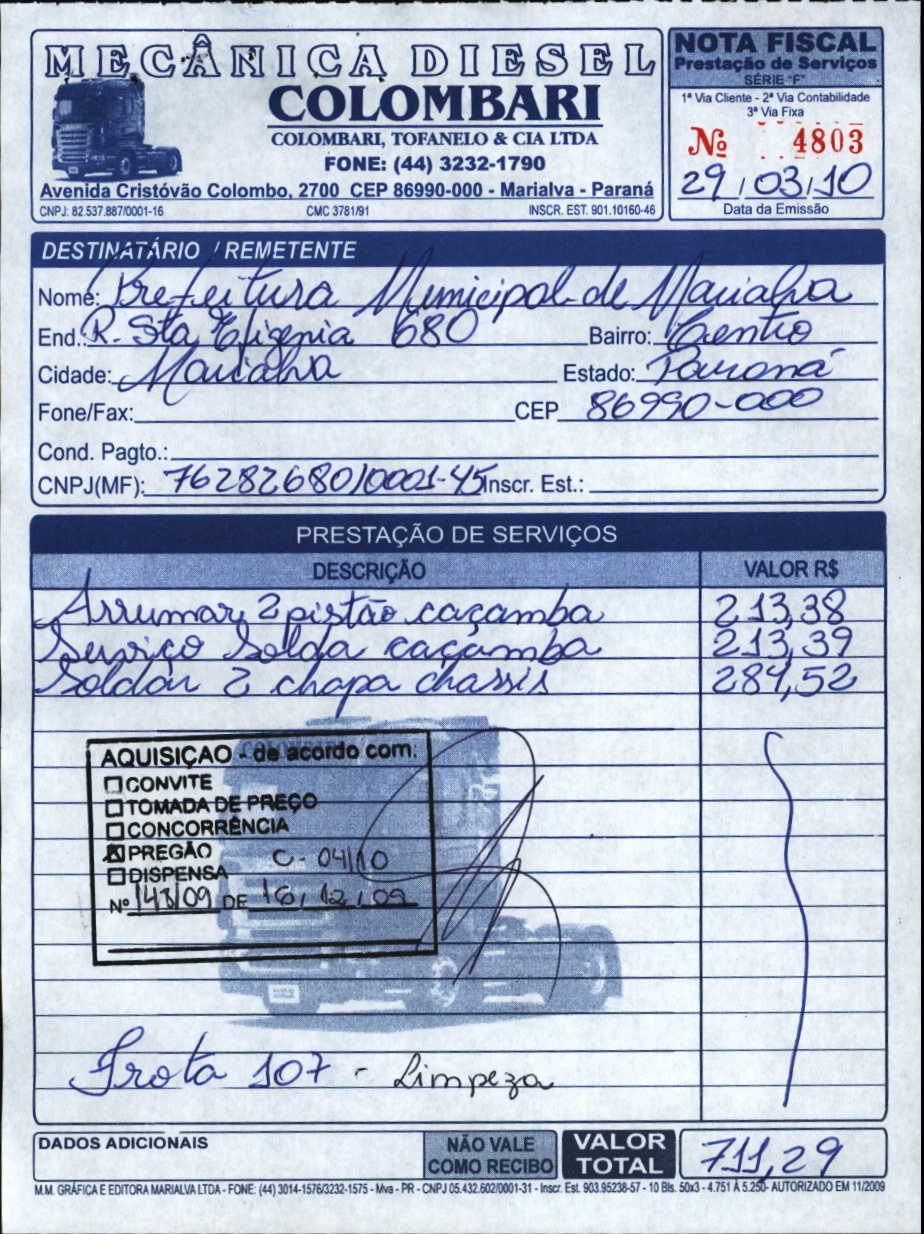 MECÂNICA DIESEL
COLOMBARI
COLOMBARI, TOFANELO & CIA LTDA
FONE: (44) 3232-1790
Avenida Cristóvão Colombo, 2700 CEP 86990-000 - Marialva - Paraná
CNPJ: 82.537.887/0001-16 CMC 3781/91 INSCR. EST. 901.10160-46
NOTA FISCAL
Prestação de Serviços
SÉRIE "F"
1ª Via Cliente - 2ª Via Contabilidade
3ª Via Fixa
Nº 4803
29/03/10
Data da Emissão
DESTINATÁRIO / REMETENTE
Nome: Prefeitura Municipal de Marialva
End.: R. Sta Efigenia 680 Bairro: Centro
Cidade: Marialva Estado: Paraná
Fone/Fax: CEP 86990-000
Cond. Pagto.:
CNPJ(MF): 76282680/0001-45 Inscr. Est.:
PRESTAÇÃO DE SERVIÇOS
DESCRIÇÃO VALOR R$
Arrumar 2 pistão caçamba 213,38
Serviço Solda caçamba 213,39
Soldar 2 chapa chassis 284,52
AQUISIÇAO - de acordo com:
CONVITE
TOMADA DE PREÇO
CONCORRÊNCIA
PREGÃO C-04/10
DISPENSA
Nº DE 16/12/09
Frota 107 - Limpeza
DADOS ADICIONAIS
NÃO VALE
COMO RECIBO
VALOR
TOTAL
711,29
M.M. GRÁFICA E EDITORA MARIALVA LTDA - FONE: (44) 3014-1576/3232-1575 - Mva - PR - CNPJ 05.432.602/0001-31 - Inscr. Est. 903.95238-57 - 10 Bls. 50x3 - 4.751 À 5.250- AUTORIZADO EM 11/2009